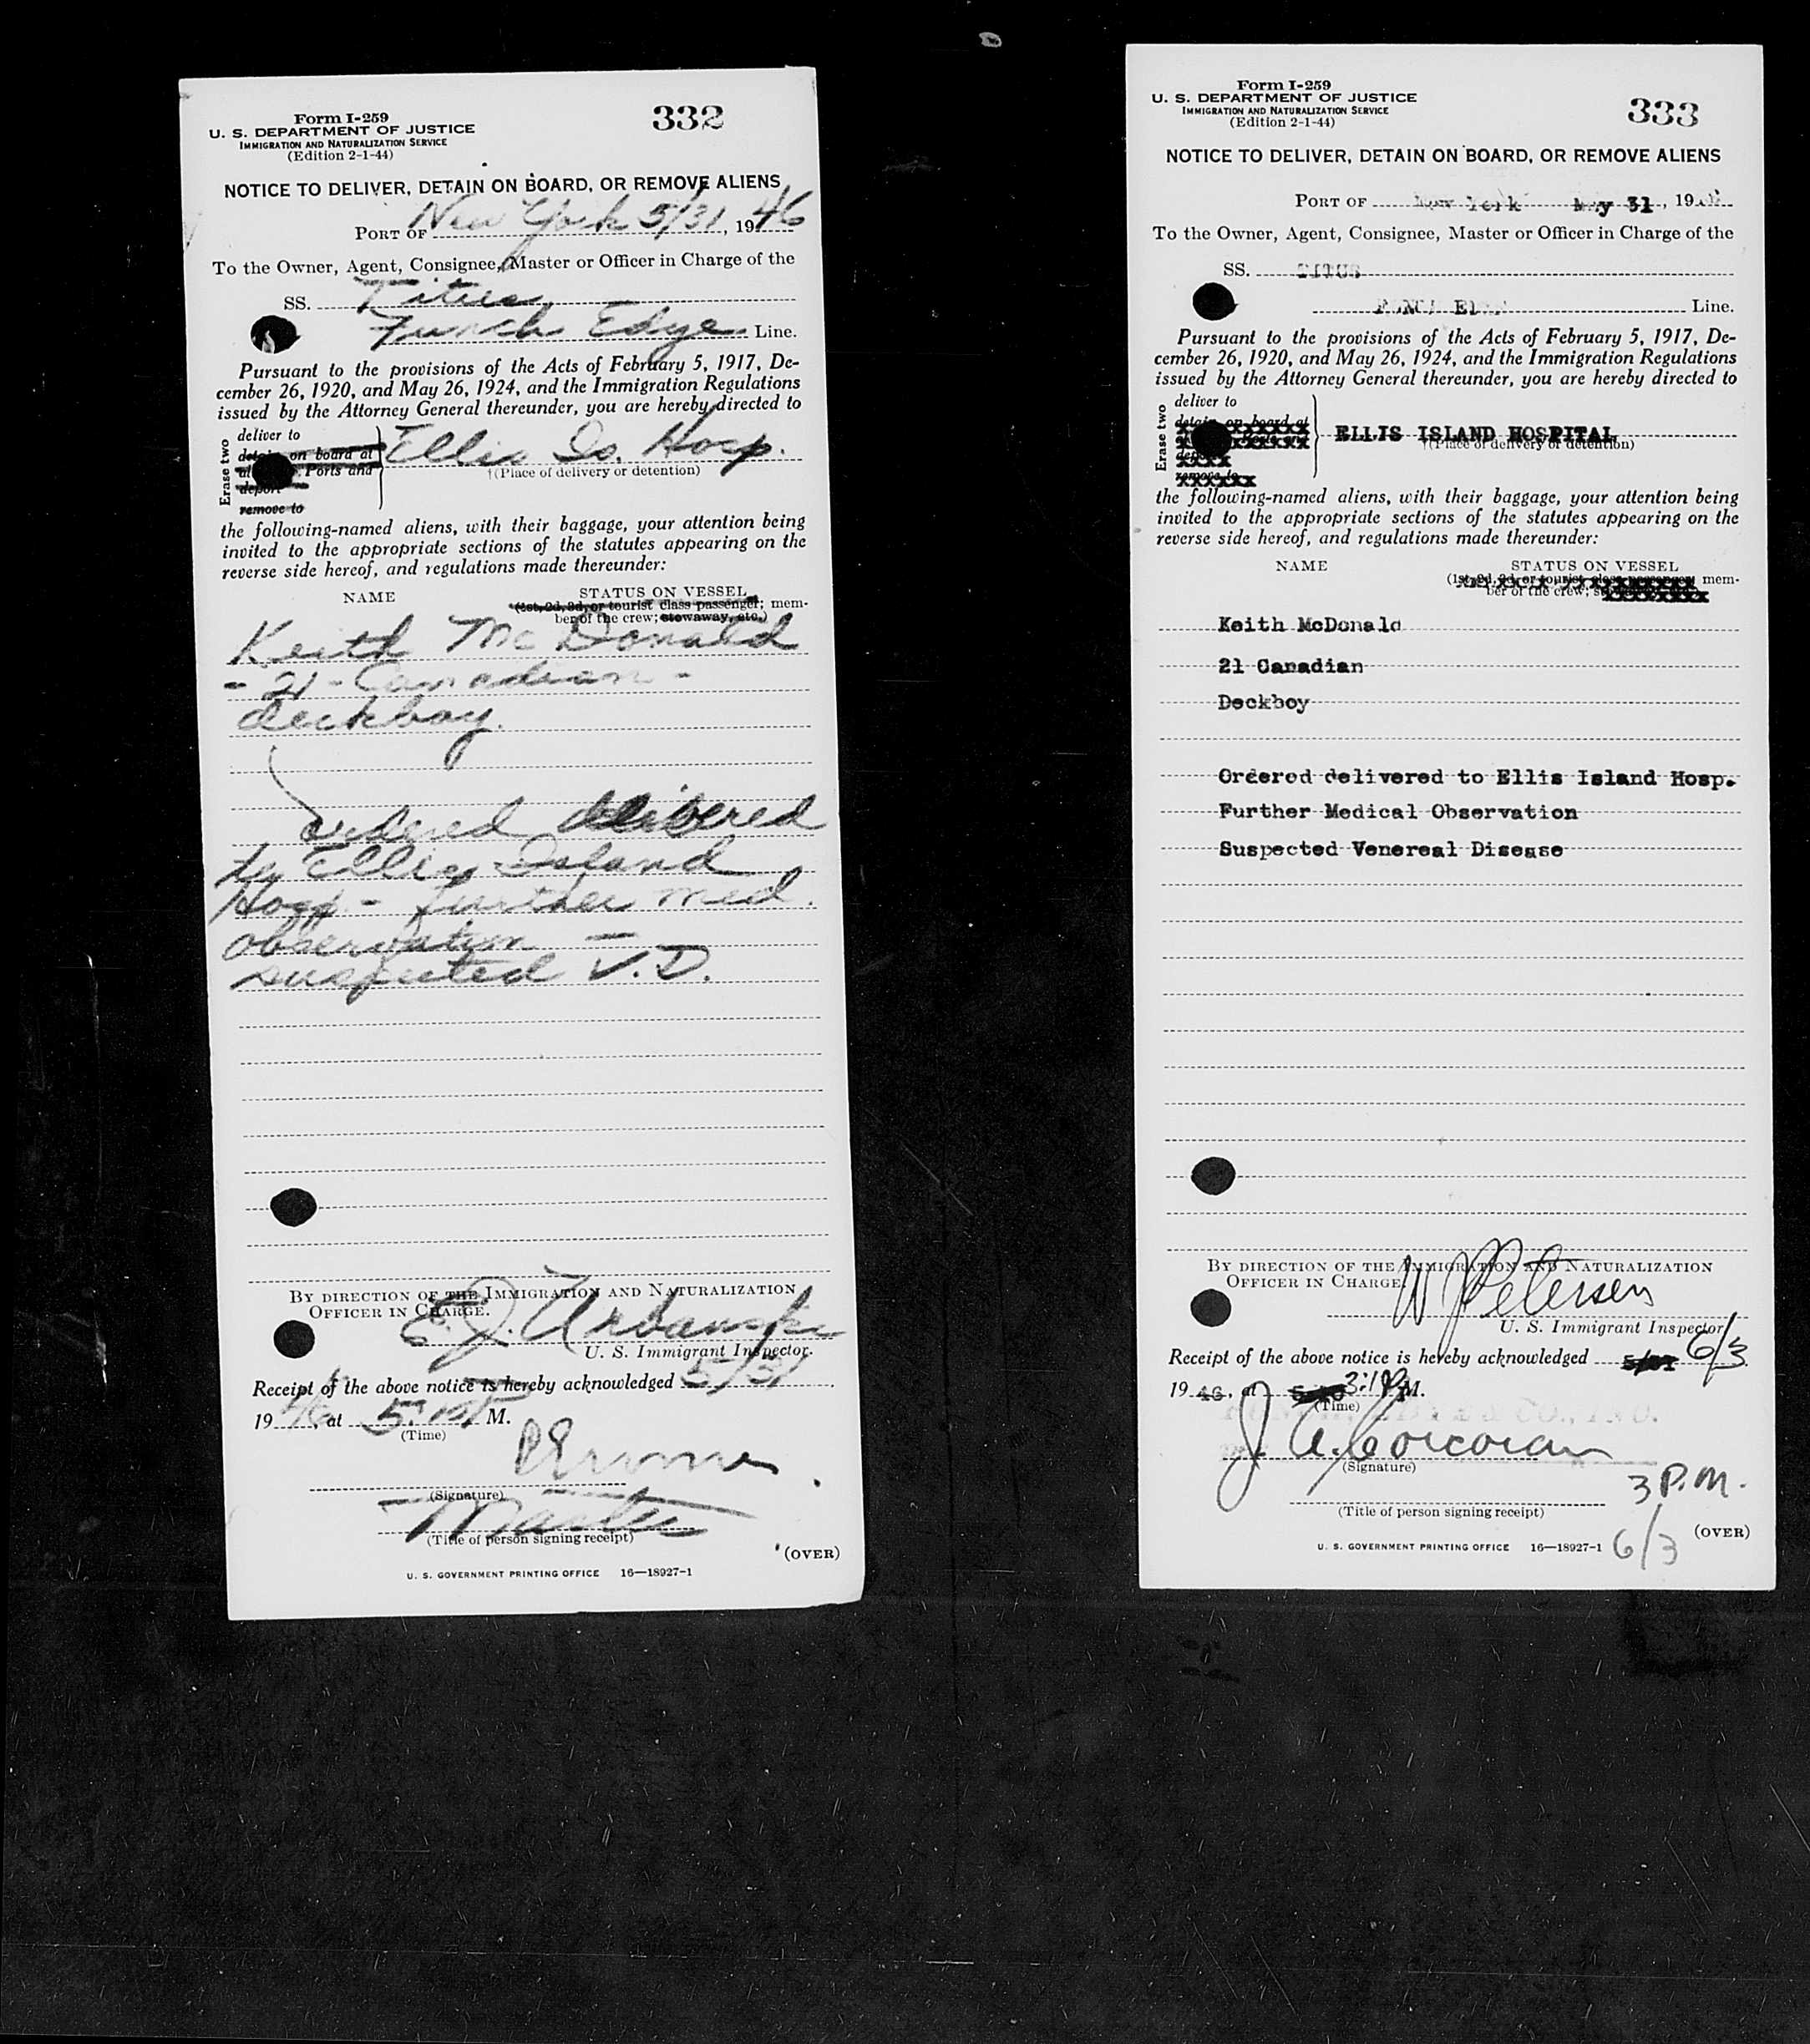 Form I-259
U. S. DEPARTMENT OF JUSTICE
IMMIGRATION AND NATURALIZATION SERVICE
(Edition 2-1-44)
332
NOTICE TO DELIVER, DETAIN ON BOARD, OR REMOVE ALIENS
PORT OF New York 5/31, 1946
To the Owner, Agent, Consignee, Master or Officer in Charge of the
SS. Titus
Funch Edye Line.
Pursuant to the provisions of the Acts of February 5, 1917, De-
cember 26, 1920, and May 26, 1924, and the Immigration Regulations
issued by the Attorney General thereunder, you are hereby directed to
Erase two
deliver to
detain on board at
Ports and
deport
remove to
Ellis Is. Hosp.
†(Place of delivery or detention)
the following-named aliens, with their baggage, your attention being
invited to the appropriate sections of the statutes appearing on the
reverse side hereof, and regulations made thereunder:
NAME
STATUS ON VESSEL
(1st, 2d, 3d, or tourist class passenger; mem-
ber of the crew; stowaway, etc.)
Keith McDonald
- 21 - Canadian -
deckboy.
ordered delibered
to Ellis Island
Hosp - further med.
observation —
suspected V.D.
BY DIRECTION OF THE IMMIGRATION AND NATURALIZATION
OFFICER IN CHARGE.
E. J. Urbanski
U. S. Immigrant Inspector.
Receipt of the above notice is hereby acknowledged 5/31
1946, at 5:10 P M.
(Time)
(Signature)
Master
(Title of person signing receipt)
(OVER)
U. S. GOVERNMENT PRINTING OFFICE 16—18927-1
Form I-259
U. S. DEPARTMENT OF JUSTICE
IMMIGRATION AND NATURALIZATION SERVICE
(Edition 2-1-44)
333
NOTICE TO DELIVER, DETAIN ON BOARD, OR REMOVE ALIENS
PORT OF New York May 31, 19
To the Owner, Agent, Consignee, Master or Officer in Charge of the
SS. TITUS
Line.
Pursuant to the provisions of the Acts of February 5, 1917, De-
cember 26, 1920, and May 26, 1924, and the Immigration Regulations
issued by the Attorney General thereunder, you are hereby directed to
Erase two
deliver to
detain on board at
deport
remove to
ELLIS ISLAND HOSPITAL
†(Place of delivery or detention)
the following-named aliens, with their baggage, your attention being
invited to the appropriate sections of the statutes appearing on the
reverse side hereof, and regulations made thereunder:
NAME
STATUS ON VESSEL
(1st, 2d, 3d, or tourist class passenger; mem-
ber of the crew;
Keith McDonald
21 Canadian
Deckboy
Ordered delivered to Ellis Island Hosp.
Further Medical Observation
Suspected Venereal Disease
BY DIRECTION OF THE IMMIGRATION AND NATURALIZATION
OFFICER IN CHARGE
W J Petersen
U. S. Immigrant Inspector
Receipt of the above notice is hereby acknowledged 5/31 6/3
1946, at 3:10 P M.
(Time)
J. A. Corcoran
(Signature)
3 P.M.
(Title of person signing receipt)
6/3
(OVER)
U. S. GOVERNMENT PRINTING OFFICE 16—18927-1